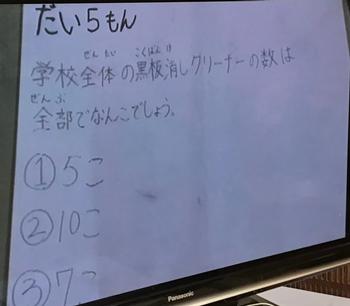 だい5もん
学校全体の黒板消しクリーナーの数は
ぜんたい こくばんけ
全部でなんこでしょう。
ぜんぶ
①5こ
②10こ
③7こ
Panasonic